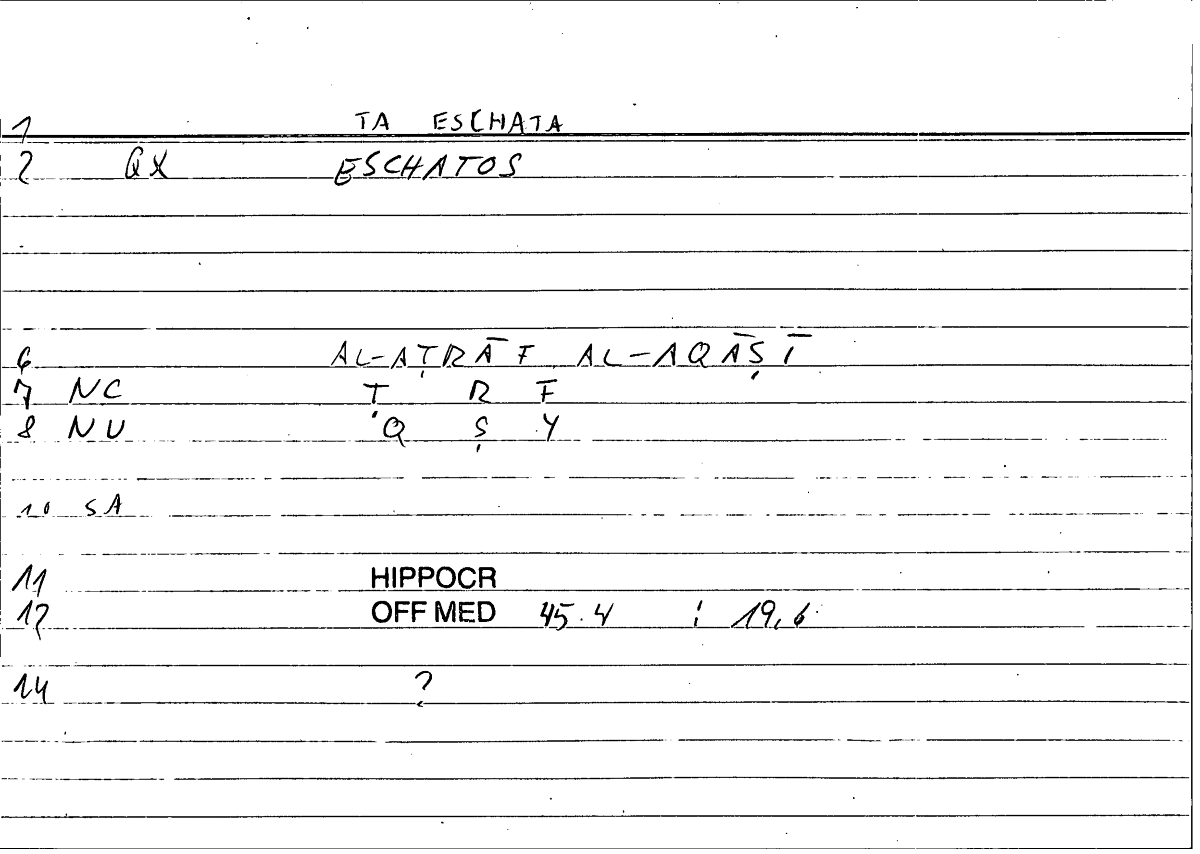 1 TA ESCHATA
2 QX ESCHATOS
6 AL-AṬRĀF AL-AQĀṢĪ
7 NC Ṭ R F
8 NU Q Ṣ Y
10 SA
11 HIPPOCR
12 OFF MED 45.4 : 19,6
14 ?